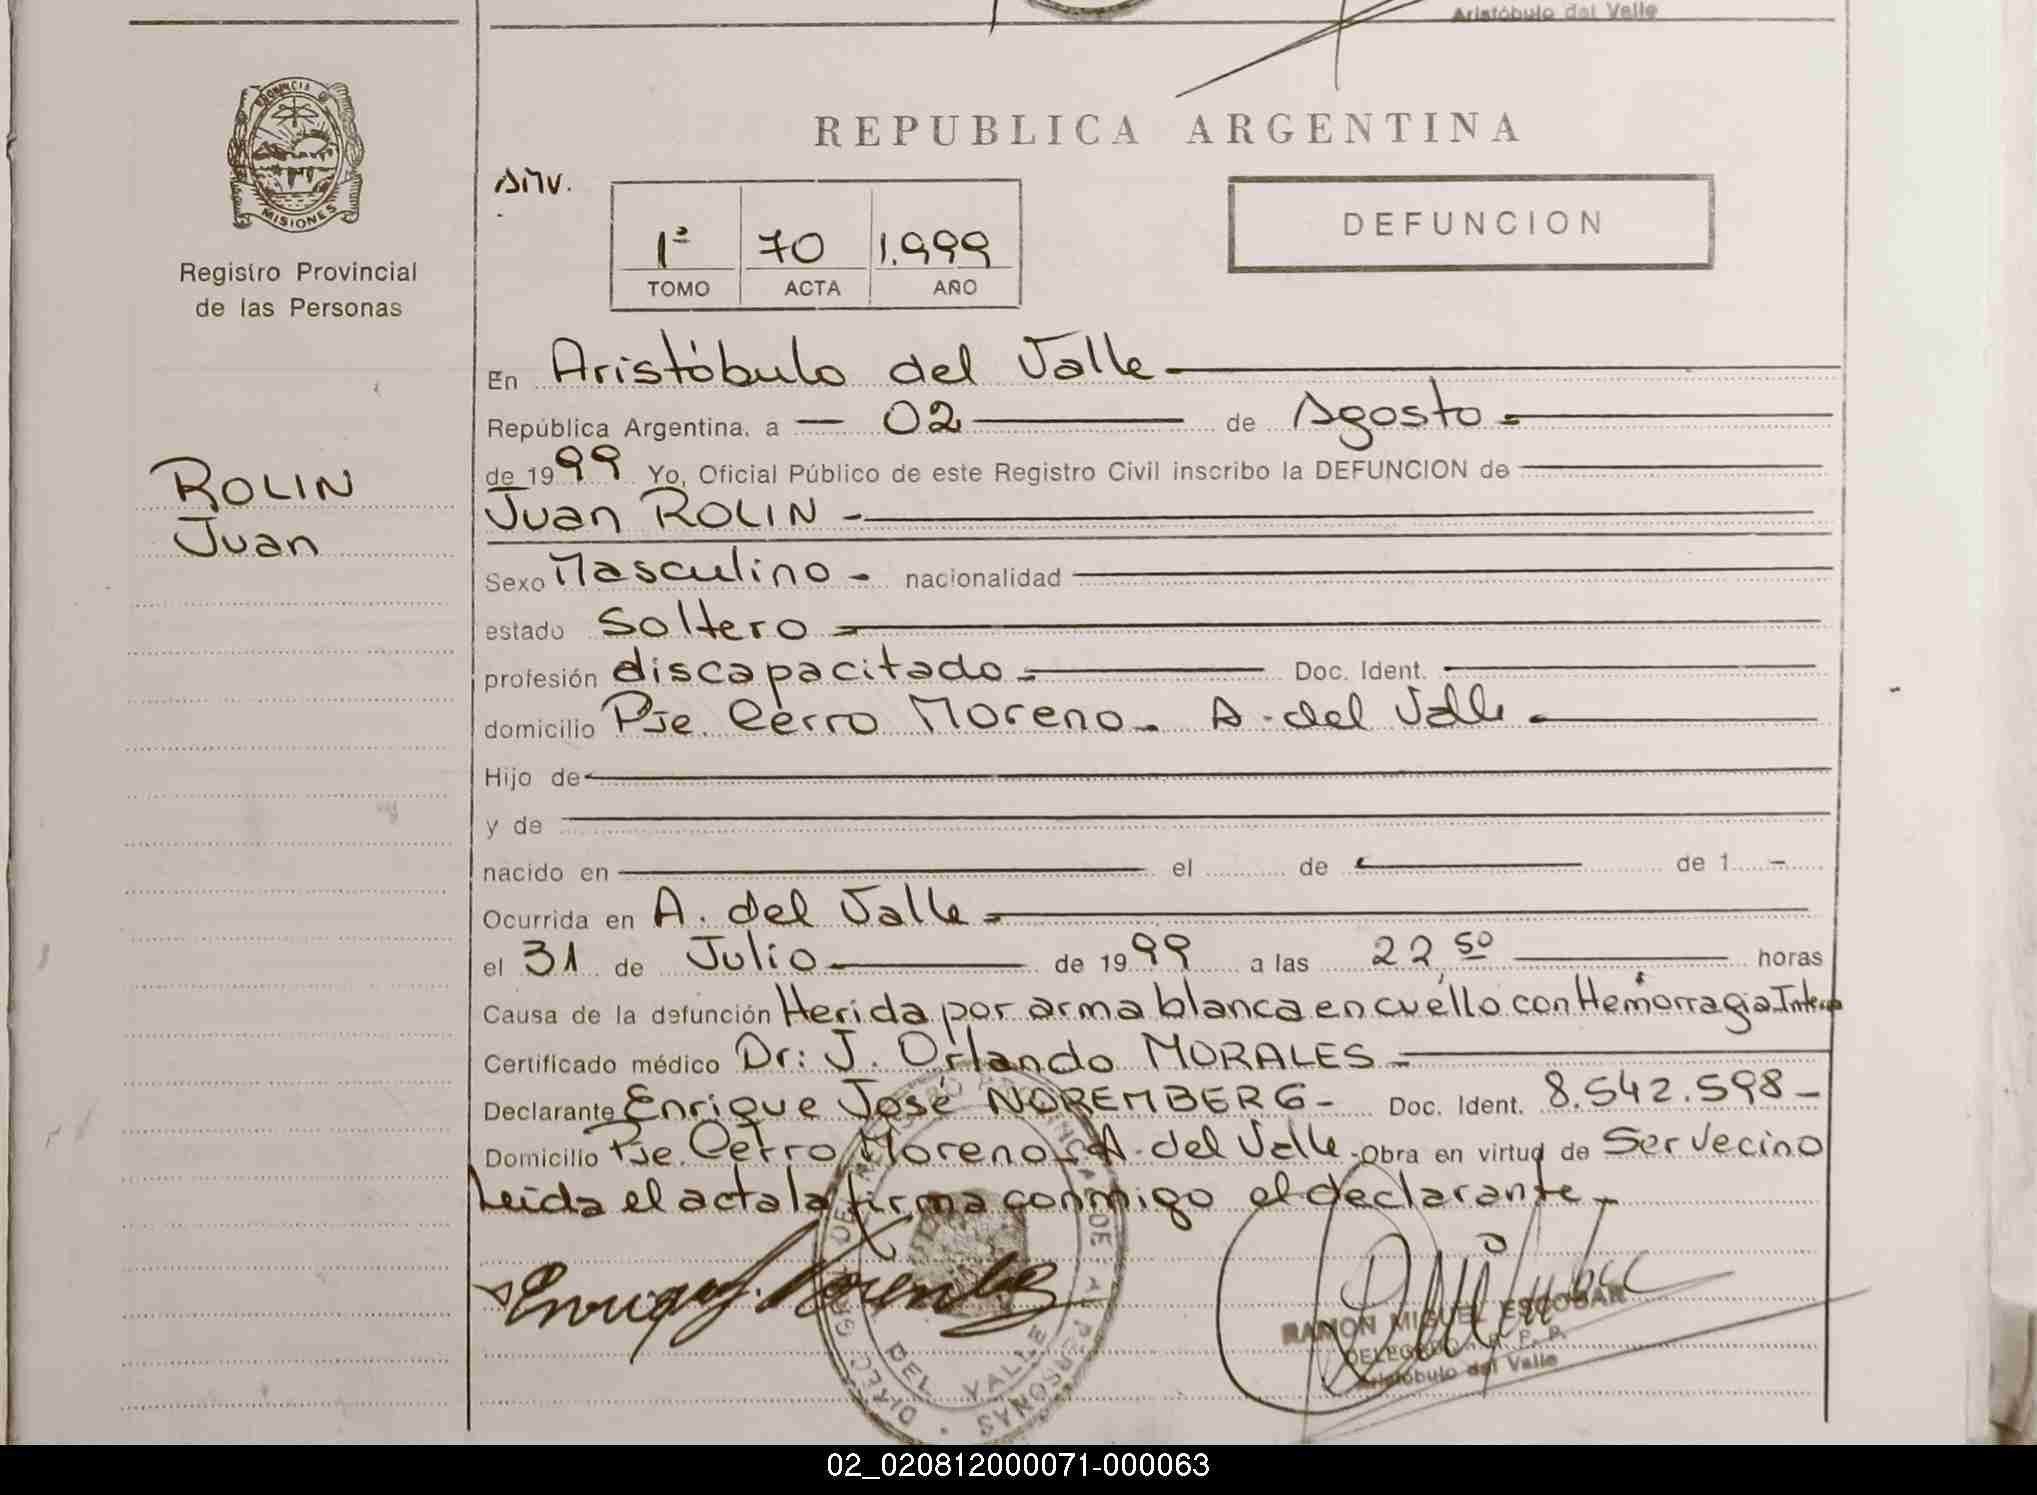 Aristóbulo del Valle
PROVINCIA DE
MISIONES
Registro Provincial
de las Personas
ROLIN
Juan
REPUBLICA ARGENTINA
DEFUNCION
1º 70 1.999
TOMO ACTA AÑO
En Aristóbulo del Valle
República Argentina, a — 02 — de Agosto
de 1999 Yo, Oficial Público de este Registro Civil inscribo la DEFUNCION de
Juan ROLIN -
Sexo Masculino - nacionalidad
estado Soltero
profesión discapacitado Doc. Ident.
domicilio Pje. Cerro Moreno - A. del Valle
Hijo de
y de
nacido en el de de 1 -
Ocurrida en A. del Valle
el 31 de Julio de 1999 a las 22,50 horas
Causa de la defunción Herida por arma blanca en cuello con Hemorragia Interna
Certificado médico Dr: J. Orlando MORALES
Declarante Enrique José NOREMBERG - Doc. Ident. 8.542.598 -
Domicilio Pje. Cerro Moreno - A. del Valle. Obra en virtud de Ser Vecino
Leída el acta la firma conmigo el declarante -
RAMON MIGUEL ESCOBAR
DELEGADO R. P. P.
Aristóbulo del Valle
DEL VALLE
02_020812000071-000063